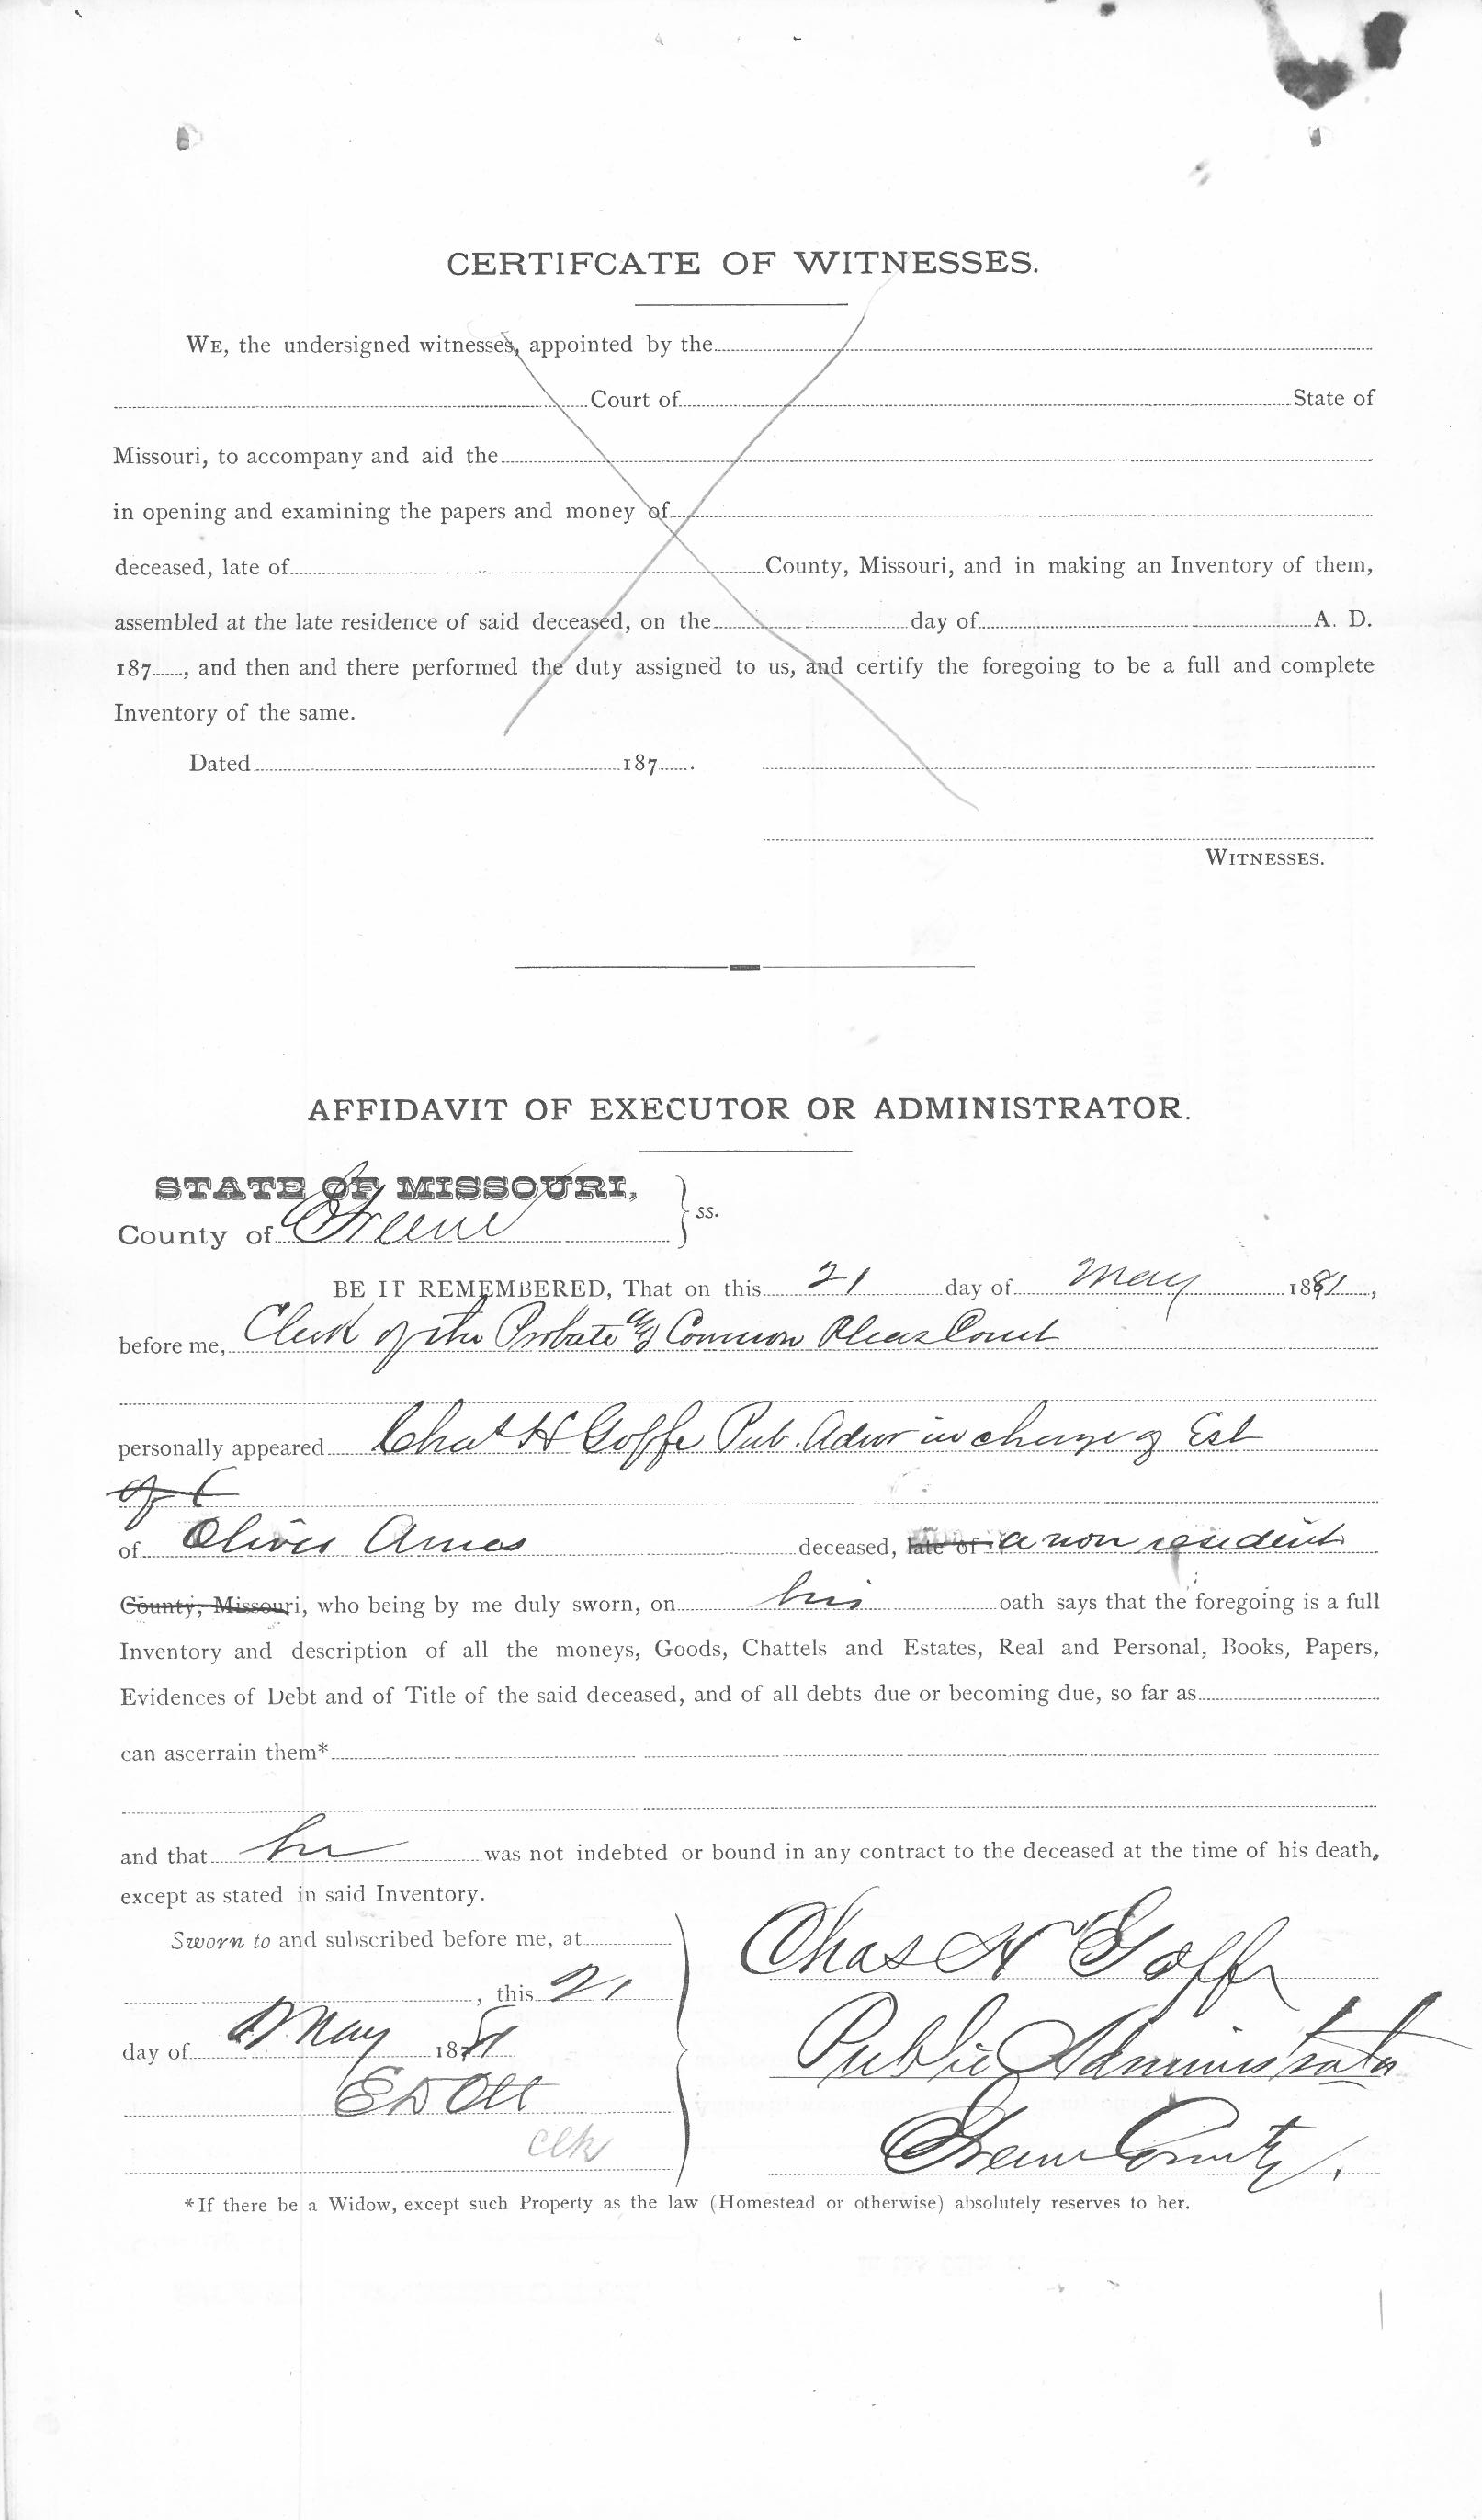 CERTIFCATE OF WITNESSES.
WE, the undersigned witnesses, appointed by the
Court of State of
Missouri, to accompany and aid the
in opening and examining the papers and money of
deceased, late of County, Missouri, and in making an Inventory of them,
assembled at the late residence of said deceased, on the day of A. D.
187 , and then and there performed the duty assigned to us, and certify the foregoing to be a full and complete
Inventory of the same.
Dated 187 .
WITNESSES.
AFFIDAVIT OF EXECUTOR OR ADMINISTRATOR.
STATE OF MISSOURI,
County of Greene } ss.
BE IT REMEMBERED, That on this 21 day of May 1881,
before me, Clerk of the Probate & Common Pleas Court
personally appeared Chas H Goffe Pub. Admr in charge of Est
of
of Oliver Ames deceased, late of a non resident
County, Missouri, who being by me duly sworn, on his oath says that the foregoing is a full
Inventory and description of all the moneys, Goods, Chattels and Estates, Real and Personal, Books, Papers,
Evidences of Debt and of Title of the said deceased, and of all debts due or becoming due, so far as
can ascerrain them*
and that he was not indebted or bound in any contract to the deceased at the time of his death,
except as stated in said Inventory.
Sworn to and subscribed before me, at
, this 21
day of May 1881
E D Ott
clk
Chas H Goffe
Public Administrator
Greene County.
*If there be a Widow, except such Property as the law (Homestead or otherwise) absolutely reserves to her.